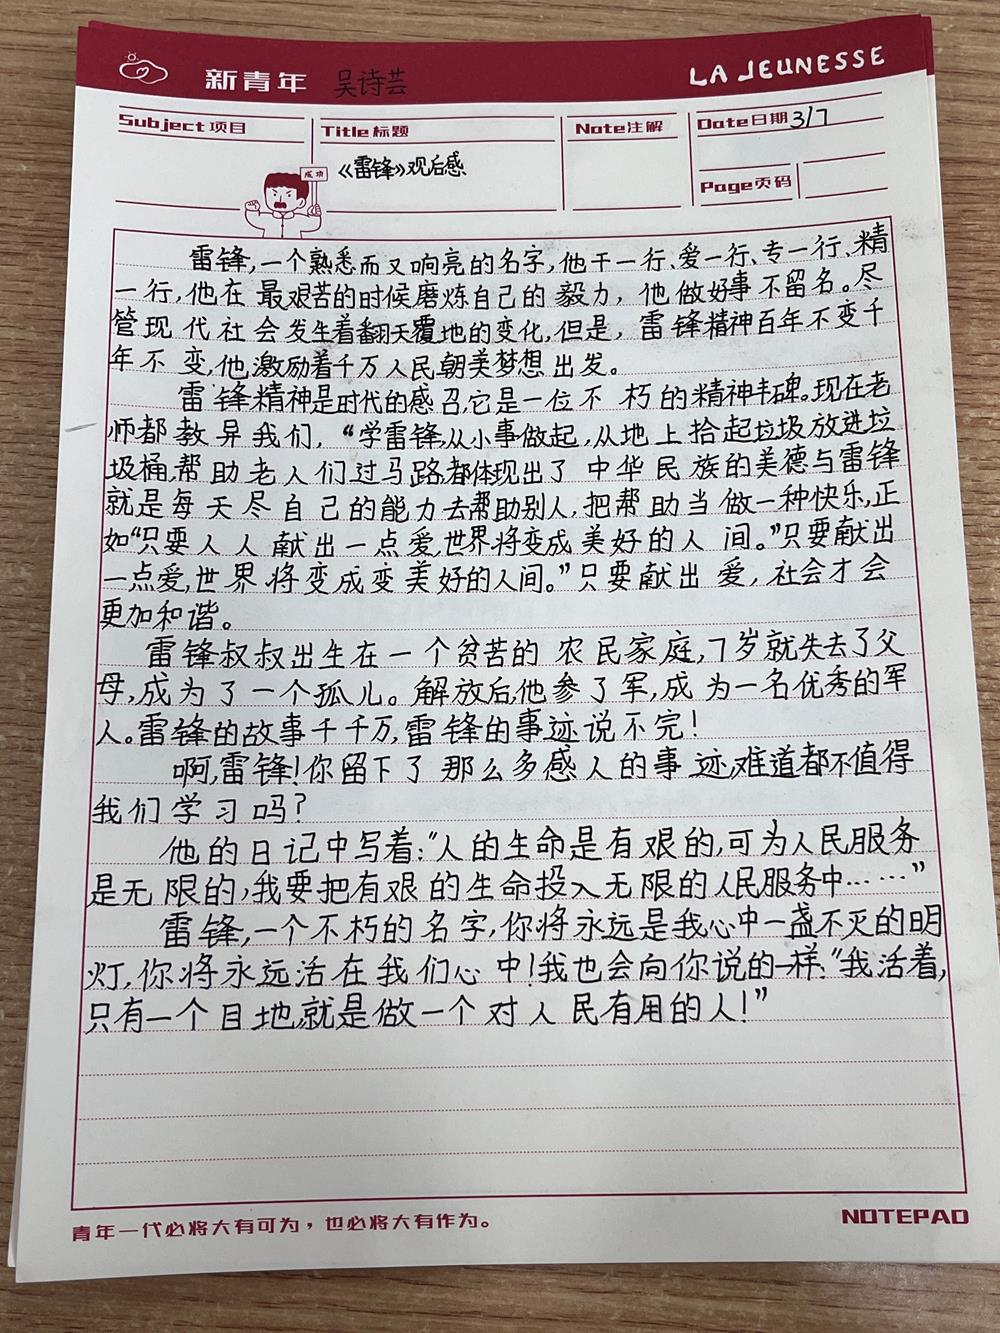 新青年 吴诗芸 LA JEUNESSE
Subject 项目 Title 标题 Note 注解 Date 日期 3/7
成功 《雷锋》观后感 Page 页码
雷锋,一个熟悉而又响亮的名字,他干一行、爱一行、专一行、精
一行,他在最艰苦的时候磨炼自己的毅力,他做好事不留名。尽
管现代社会发生着翻天覆地的变化,但是,雷锋精神百年不变千
年不变,他激励着千万人民朝美梦想出发。
雷锋精神是时代的感召,它是一位不朽的精神丰碑。现在老
师都教导我们,“学雷锋,从小事做起,从地上拾起垃圾放进垃
圾桶,帮助老人们过马路,都体现出了中华民族的美德与雷锋
就是每天尽自己的能力去帮助别人,把帮助当做一种快乐,正
如“只要人人献出一点爱,世界将变成美好的人间。”只要献出
一点爱,世界将变成变美好的人间。”只要献出爱,社会才会
更加和谐。
雷锋叔叔出生在一个贫苦的农民家庭,7岁就失去了父
母,成为了一个孤儿。解放后,他参了军,成为一名优秀的军
人。雷锋的故事千千万,雷锋的事迹说不完!
啊,雷锋!你留下了那么多感人的事迹,难道都不值得
我们学习吗?
他的日记中写着:“人的生命是有艰的,可为人民服务
是无限的,我要把有艰的生命投入无限的人民服务中……”
雷锋,一个不朽的名字,你将永远是我心中一盏不灭的明
灯,你将永远活在我们心中!我也会向你说的一样:“我活着,
只有一个目地,就是做一个对人民有用的人!”
青年一代必将大有可为,也必将大有作为。 NOTEPAD